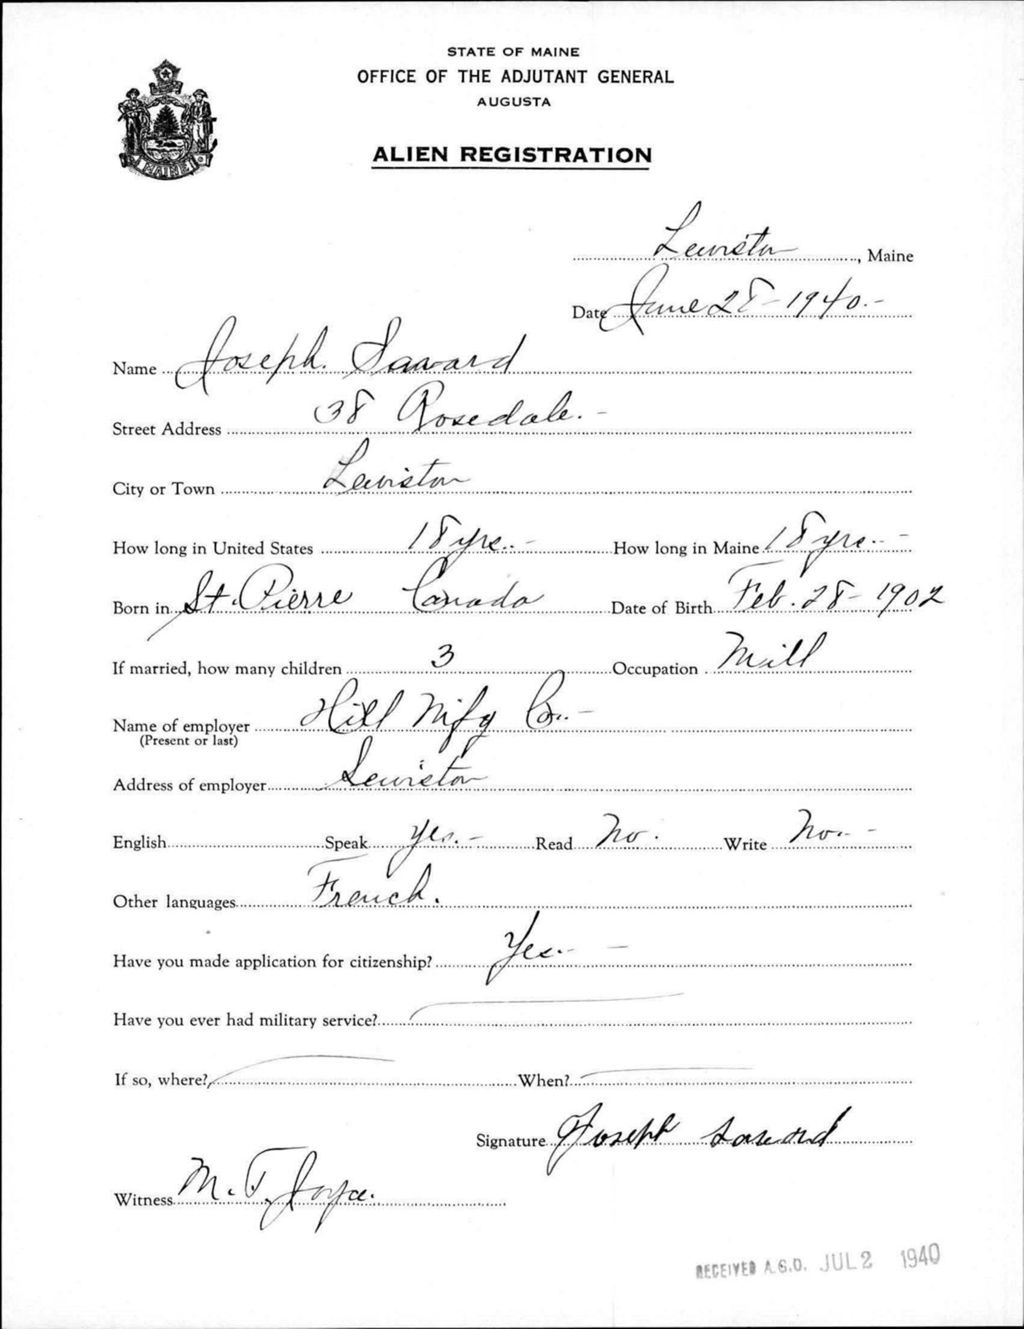 STATE OF MAINE
OFFICE OF THE ADJUTANT GENERAL
AUGUSTA
ALIEN REGISTRATION
MAINE
Lewiston, Maine
Date June 28-1940.-
Name Joseph. Saward
Street Address 38 Rosedale.-
City or Town Lewiston
How long in United States 18 yrs.- How long in Maine 18 yrs.-
Born in St. Pierre Canada Date of Birth Feb. 28-1902
If married, how many children 3 Occupation Mill
Name of employer Hill Mfg Co.-
(Present or last)
Address of employer Lewiston
English Speak Yes.- Read No. Write No.-
Other languages French.
Have you made application for citizenship? Yes.-
Have you ever had military service?
If so, where? When?
Signature Joseph Saward
Witness M. T. Joyce.
RECEIVED A.G.O. JUL 2 1940